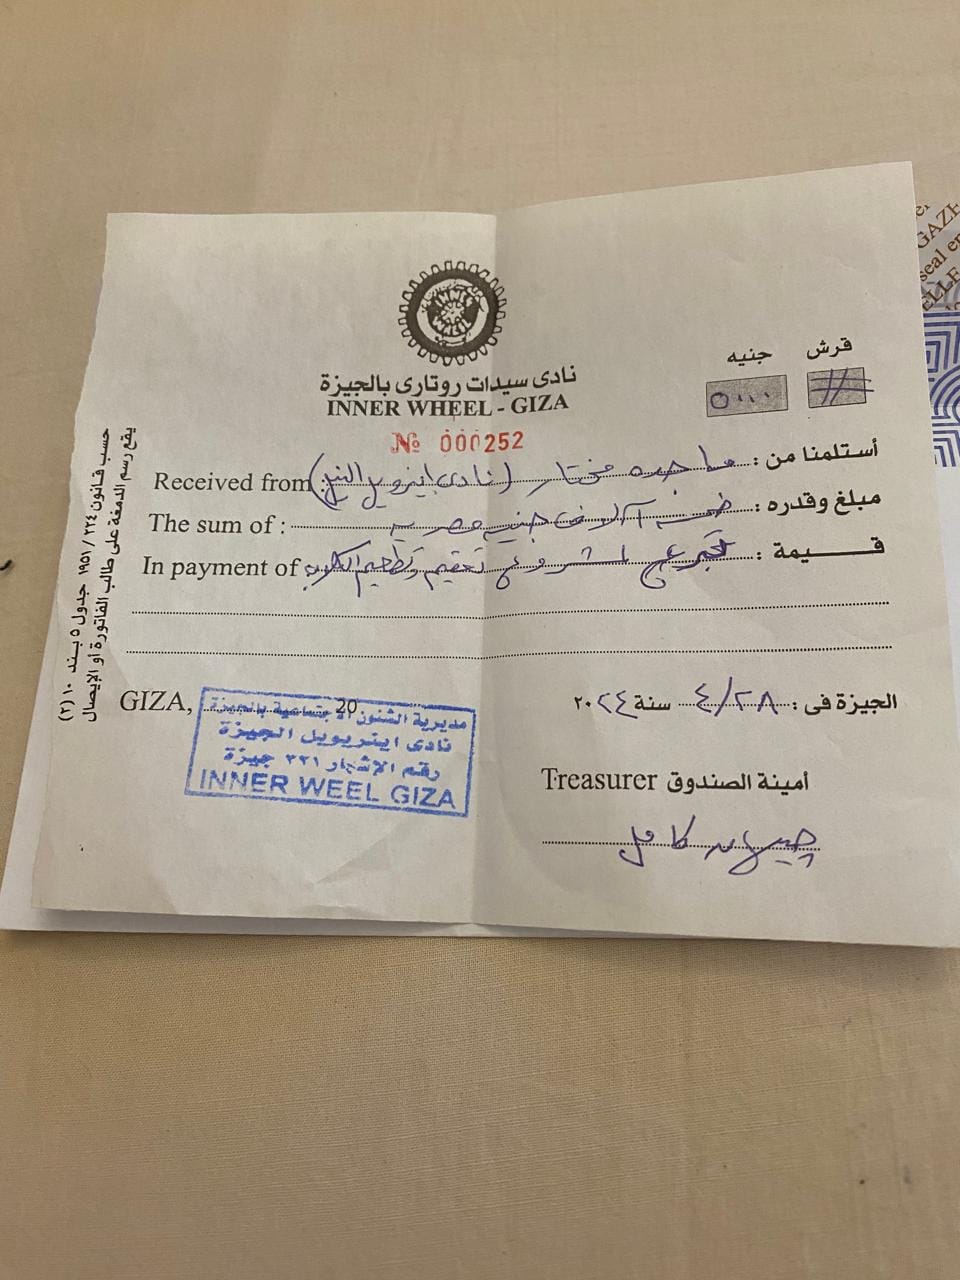 INNER WHEEL
نادى سيدات روتارى بالجيزة
INNER WHEEL - GIZA
قرش جنيه
# ٥٠٠٠
№ 000252
أستلمنا من : ماجده مختار (نادى اينرويل النيل) Received from
مبلغ وقدره : خمسة آلاف جنيه مصرى The sum of :
قيمة : تبرع لمشروع تعقيم وتطعيم الكلاب In payment of
الجيزة فى : ٤/٢٨ سنة ٢٠٢٤
GIZA, 20
مديرية الشئون الاجتماعية بالجيزة
نادى اينرويل الجيزة
رقم الإشهار ٣٢١ جيزة
INNER WEEL GIZA
Treasurer أمينة الصندوق
جيهان كامل
حسب قانون ٢٢٤ / ١٩٥١ جدول ٥ بند ١٠ (٢)
يقع رسم الدمغة على طالب الفاتورة أو الإيصال
GAZE
seal en
ELLE